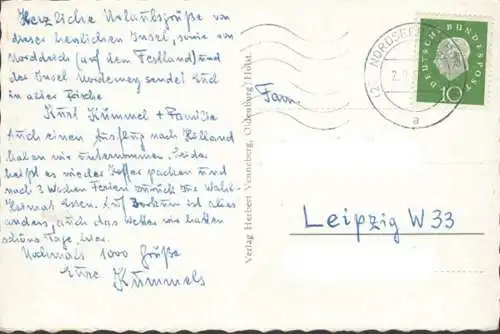 Herzliche Urlaubsgrüße von
dieser herrlichen Insel, sowie von
Norddeich (auf dem Festland) und
der Insel Norderney sendet Euch
in alter Frische
Kurt Kümmel + Familie
Auch einen Ausflug nach Holland
haben wir unternommen. Leider
heißt es wieder Koffer packen und
nach 3 Wochen Ferien zurück zur Wahl-
Heimat Essen. Auf Borkum ist alles
anders, auch das Wetter wir hatten
schöne Tage, hier.
Nochmals 1000 Grüße
Eure Kümmels
Verlag Herbert Venneberg, Oldenburg/Holst.
NORDSEE
a
DEUTSCHE BUNDESPOST
10
Fam.
Leipzig W 33